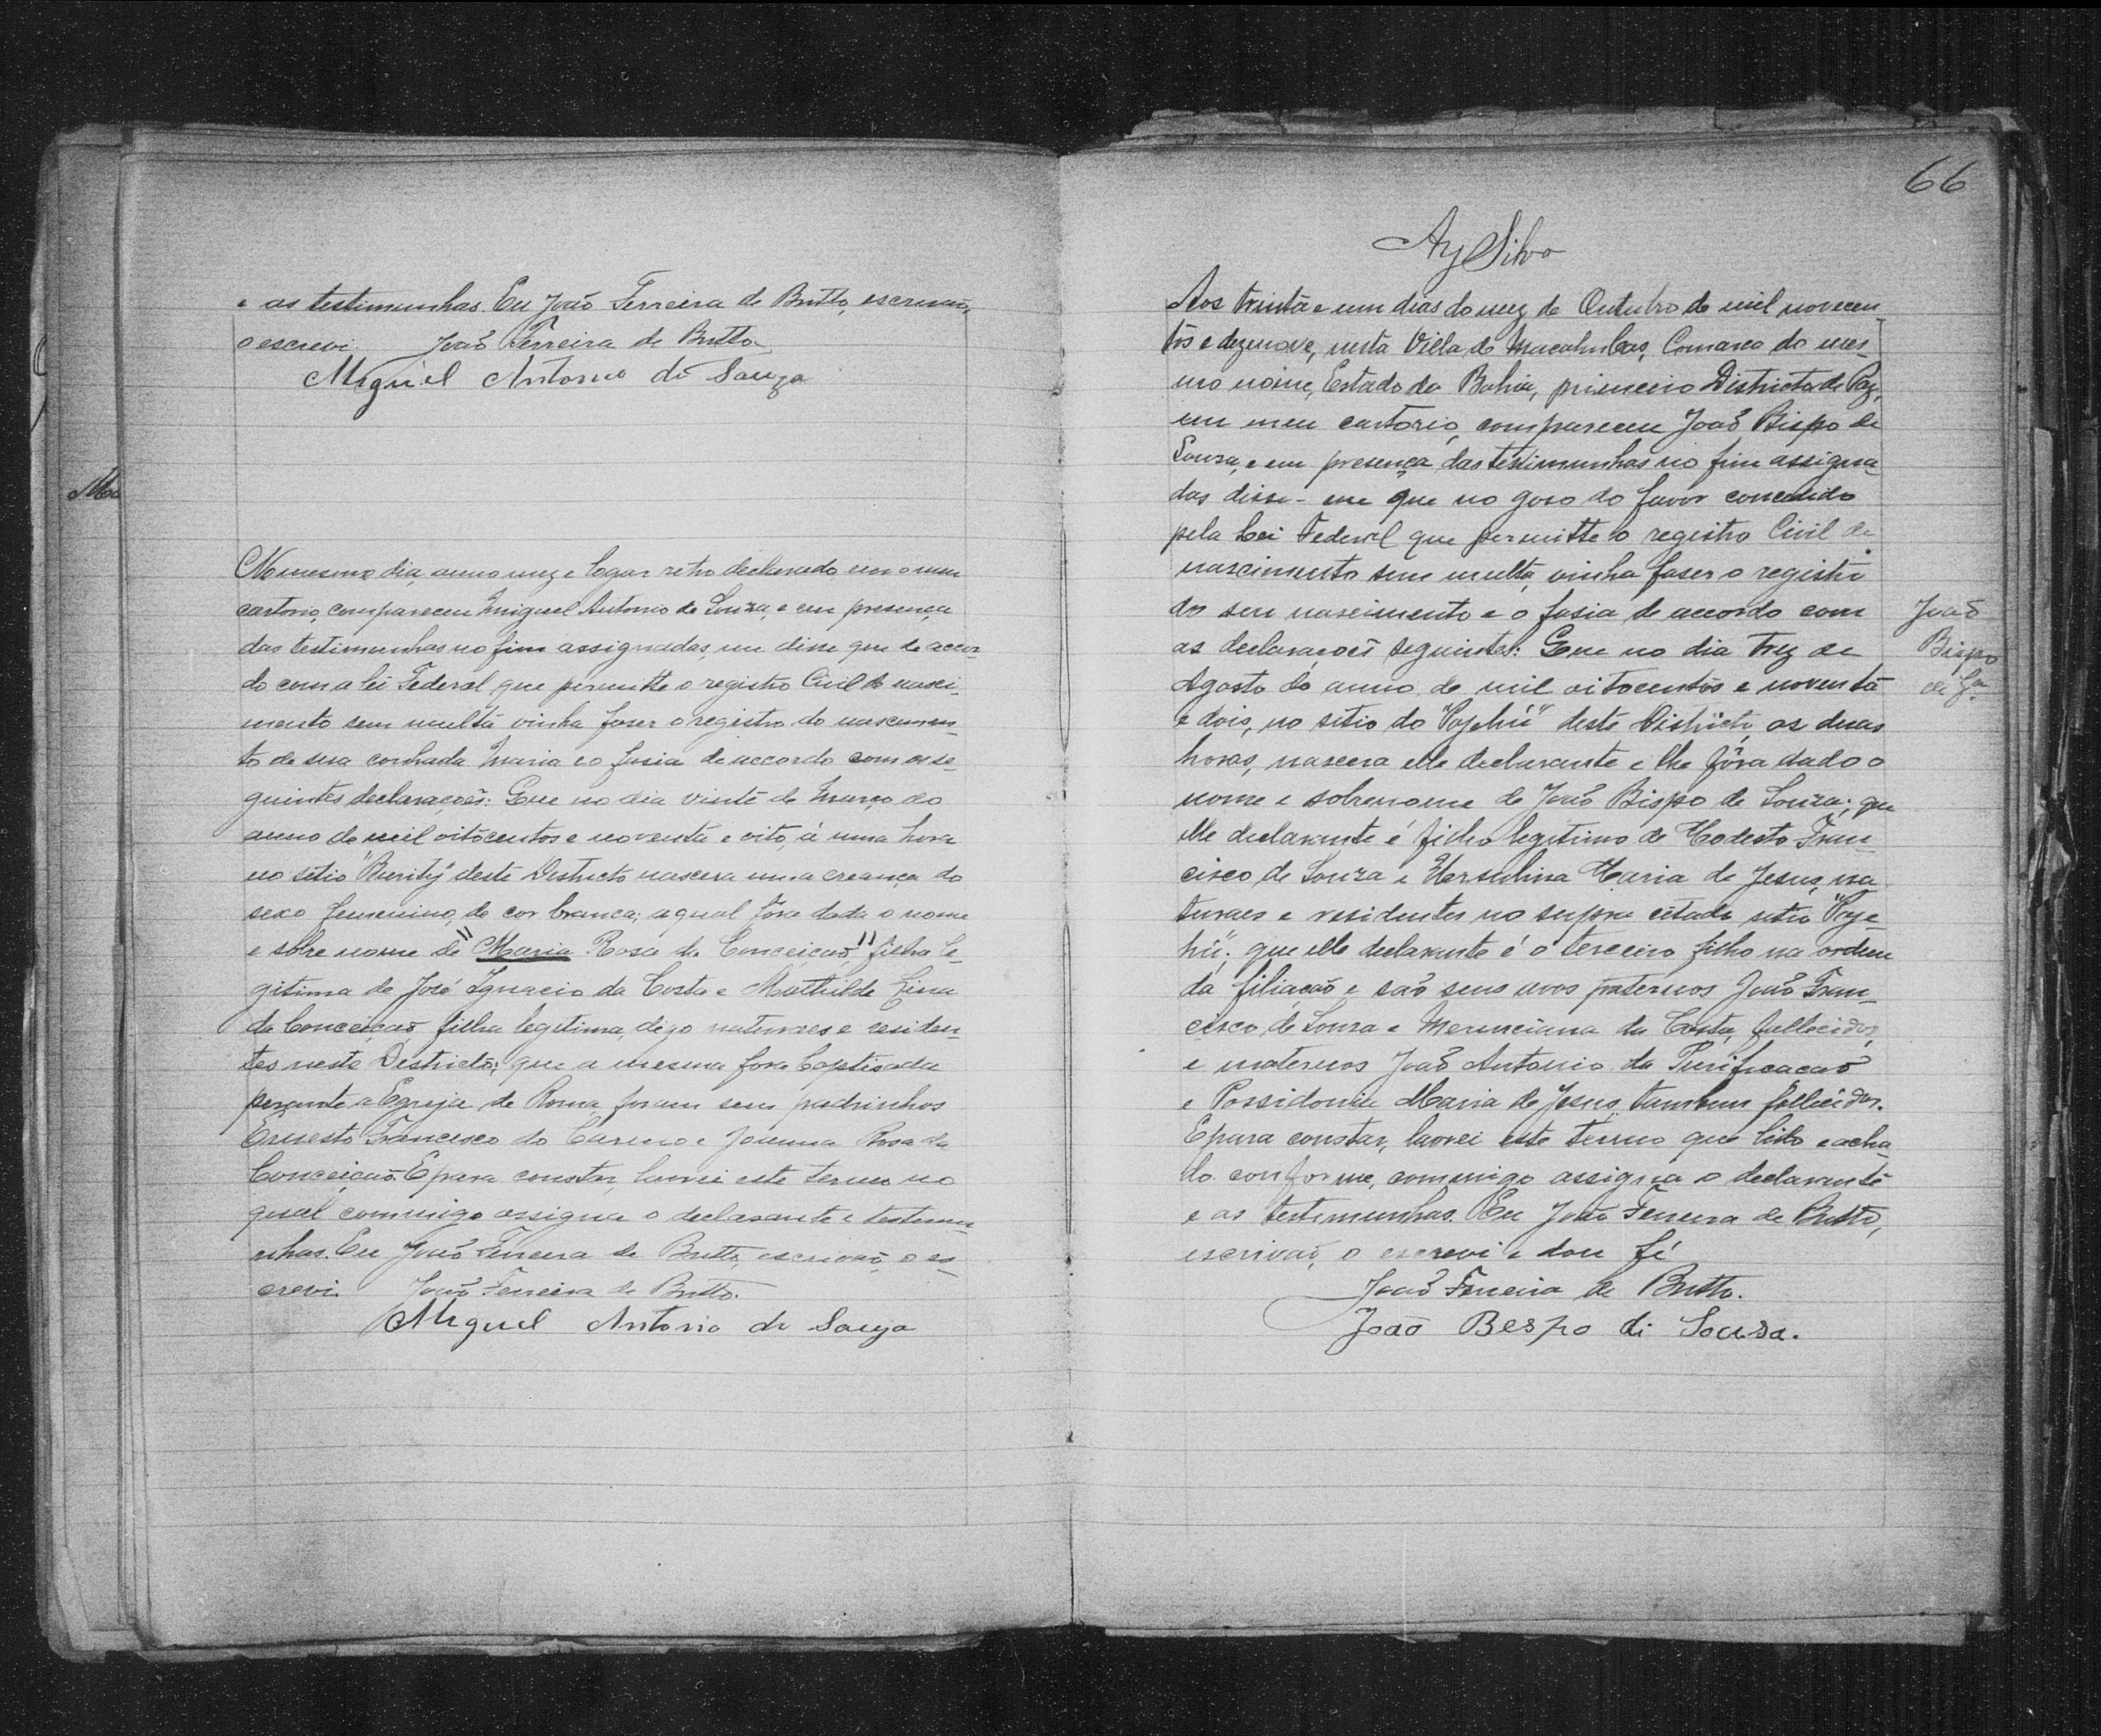 e as testimunhas. Eu João Ferreira de Britto, escrivão,
o escrevi. João Ferreira de Britto
Miguel Antonio de Souza
No mesmo dia, anno mez e logar retro declarado em o meu
cartorio, compareceu Miguel Antonio de Souza, e em presença
das testimunhas no fim assignadas, me disse que de accor-
do com a lei Federal que permitte o registro Civil de nasci-
mento sem multa vinha faser o registro do nascimen-
to de sua cunhada Maria e o fasia de accordo com as se-
guintes declarações: Que no dia vinte de Março do
anno de mil oitocentos e noventa e oito, á uma hora
no sitio "Burity" deste Destricto nascera uma creança do
sexo femenino, de cor branca; a qual fôra dada o nome
e sobre nome de "Maria Rosa da Conceição", filha le-
gitima de José Ignacio da Costa e Mathilde Lina
da Conceição, filha legitima, digo naturaes e residen-
tes neste Destricto; que a mesma fora baptisada
perante a Egreja de Roma, foram seus padrinhos
Ernesto Francisco do Carmo e Joanna Rosa da
Conceição. E para constar, lavrei este termo no
qual commigo assigna o declarante e testemu-
nhas. Eu João Ferreira de Britto, escrivão, o es-
crevi. João Ferreira de Britto.
Miguel Antonio de Souza
66
Ay Silva
Aos trinta e um dias do mez de Outubro de mil novecen-
tos e dezenove, nesta Villa de Macahubas, Comarca do mes-
mo nome, Estado da Bahia, primeiro Districto de Paz,
em meu cartorio, compareceu João Bispo de
Souza, e em presença das testimunhas no fim assigna-
das disse-me que no goso do favor concedido
pela Lei Federal que permitte o registro Civil de
nascimento sem multa, vinha faser o registro
do seu nascimento e o fasia de accordo com
as declarações seguintes: Que no dia trez de
Agosto do anno de mil oitocentos e noventa
e dois, no sitio do "Pajehú" deste Districto, as duas
horas, nascera elle declarante e lhe fôra dado o
nome e sobrenome de João Bispo de Souza; que
elle declarante é filho legitimo de Modesto Fran-
cisco de Souza e Hersulina Maria de Jesus, na-
turaes e residentes no supra citado sitio "Paje-
hú"; que elle declarante é o terceiro filho na ordem
da filiação e são seus avos paternos João Fran-
cisco de Souza e Merenciana da Costa, fallecidos,
e maternos João Antonio da Purificação
e Possidonia Maria de Jesus, tambem fallecidos.
E para constar, lavrei este termo que lido e acha-
do conforme, commigo assigna o declarante
e as testimunhas. Eu João Ferreira de Britto,
escrivão, o escrevi e dou fé
João Ferreira de Britto.
João Bespo di Souza.
João
Bispo
de Sza
Ma